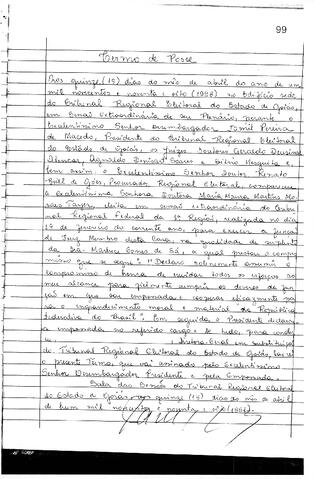 99
Termo de Posse
Aos quinze (15) dias do mês de abril do ano de um
mil novecentos e noventa e oito (1998) no Edifício sede
do Tribunal Regional Eleitoral do Estado de Goiás,
em Sessão Extraordinária de seu Plenário, perante o
Excelentíssimo Senhor Desembargador Jamil Pereira
de Macedo, Presidente do Tribunal Regional Eleitoral
do Estado de Goiás, os Juízes Doutores Geraldo
Alencar, Agnaldo Denisart Soares e Mesquita e,
bem assim o Excelentíssimo Senhor Doutor Renato
Brill de Góes, Procurador Regional Eleitoral, compareceu
a Excelentíssima Senhora Doutora Maria Maura Martins Mo-
raes Tayer, eleita em sessão extraordinária do Tribu-
nal Regional Federal da 1ª Região, realizada no dia
19 de fevereiro do corrente ano, para exercer a função
de Juiz Membro desta Corte, na qualidade de suplente
da Drª Marluce Gomes de Sá, a qual prestou o compro-
misso que se segue: "Declaro solenemente assumir o
compromisso de honra de envidar todos os esforços ao
meu alcance para fielmente cumprir os deveres da fun-
ção em que sou empossada e cooperar eficazmente pa-
ra o engrandecimento moral e material da República
Federativa do Brasil". Em seguida, o Presidente declarou
a empossada no referido cargo. E tudo, para constar
eu, Diretora Geral em substituição
do Tribunal Regional Eleitoral do Estado de Goiás, lavrei
o presente Termo, que vai assinado pelo Excelentíssimo
Senhor Desembargador Presidente e pela Empossada.
Sala das Sessões do Tribunal Regional Eleitoral
do Estado de Goiás, aos quinze (15) dias do mês de abril
de hum mil novecentos e noventa e oito (1998).